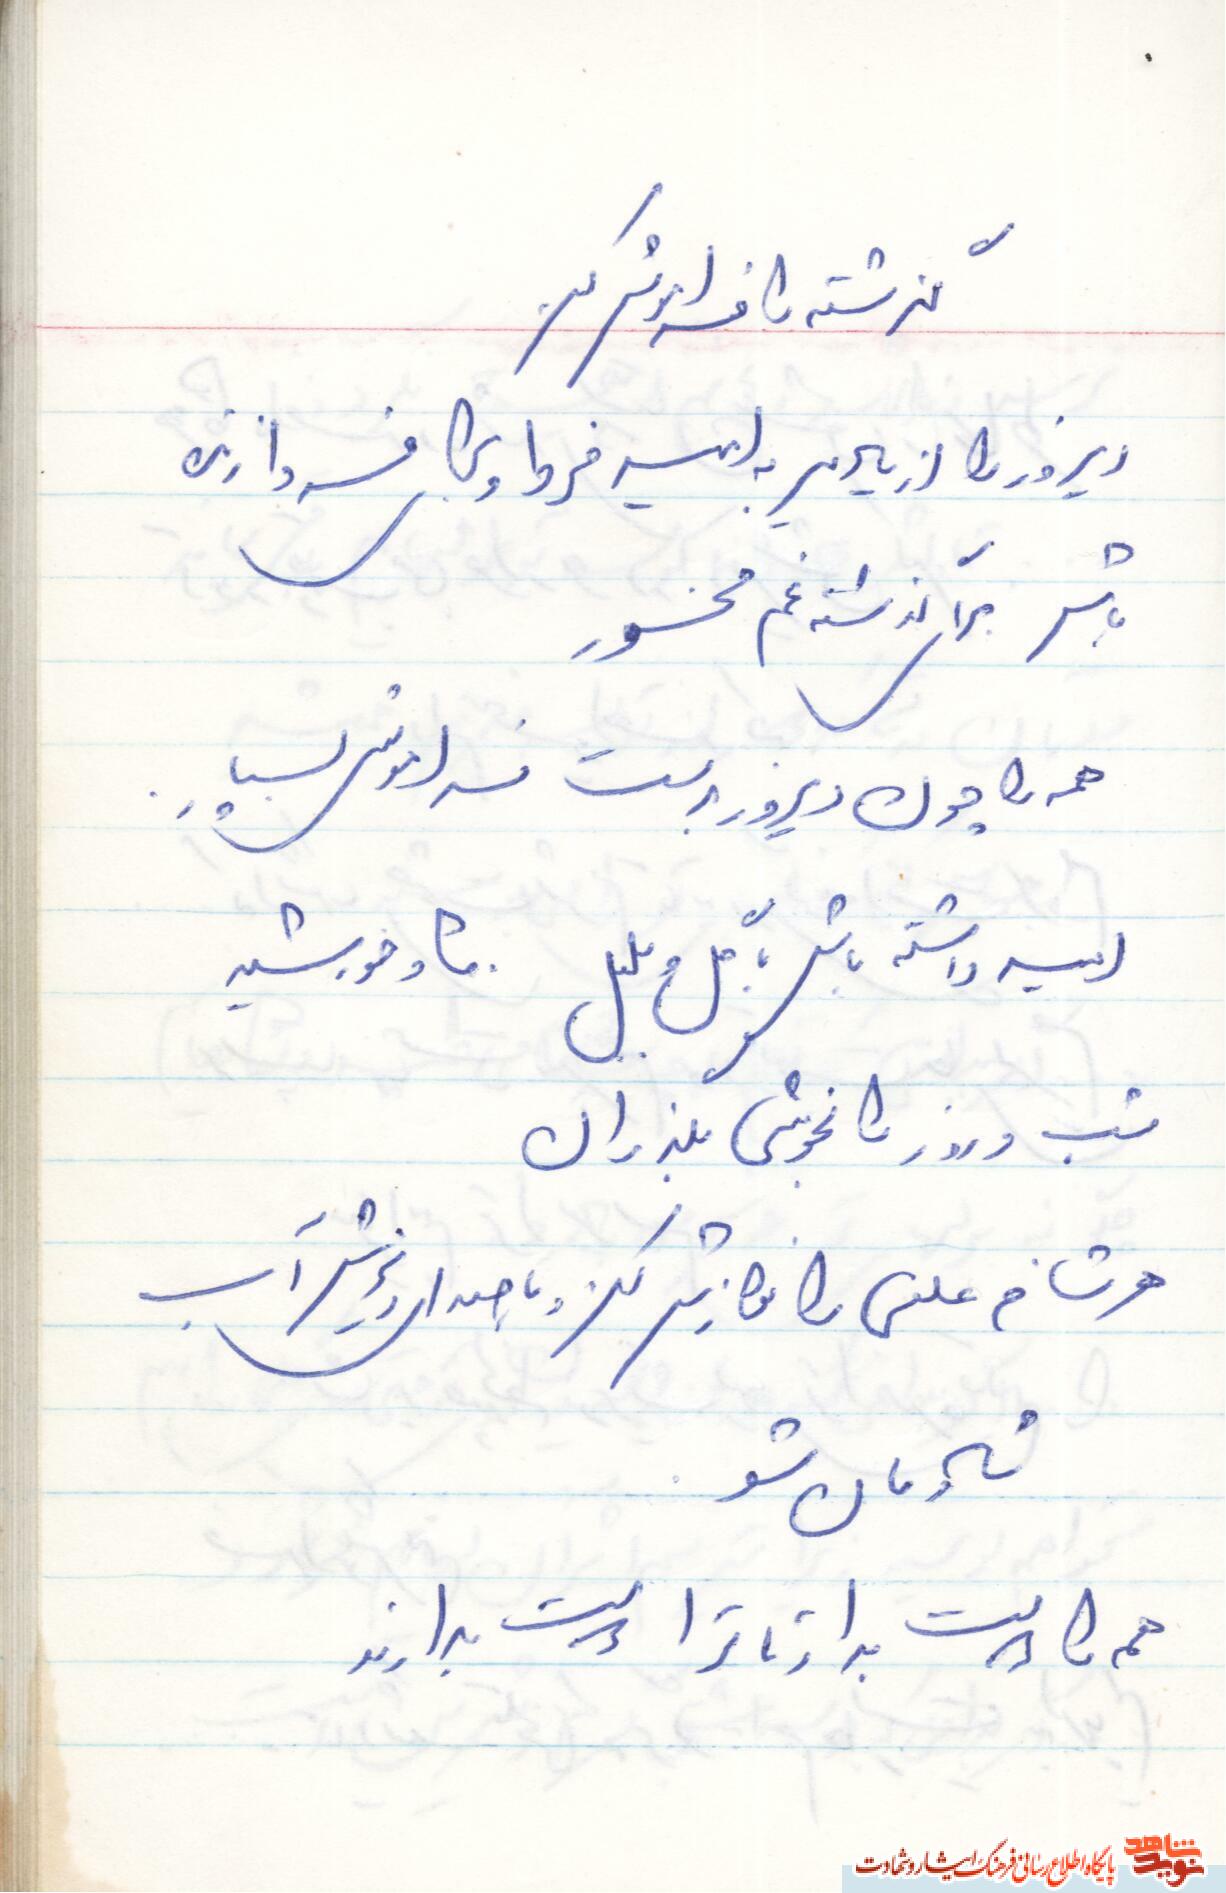 گذشته را فراموش کن
دیروز را از یاد ببر به امید فردا و برای فردا زنده
باش برای گذشته غم مخور
همه را چون دیروز بدست فراموشی بسپار.
امید داشته باش با گل و بلبل ماه و خورشید
شب و روز را بخوشی بگذران
هر شاخه علفی را نوازش کن و با صدای ریزش آب
شادمان شو.
همه را دوست بدار تا ترا دوست بدارند
نوید شاهد
پایگاه اطلاع رسانی فرهنگ ایثار و شهادت